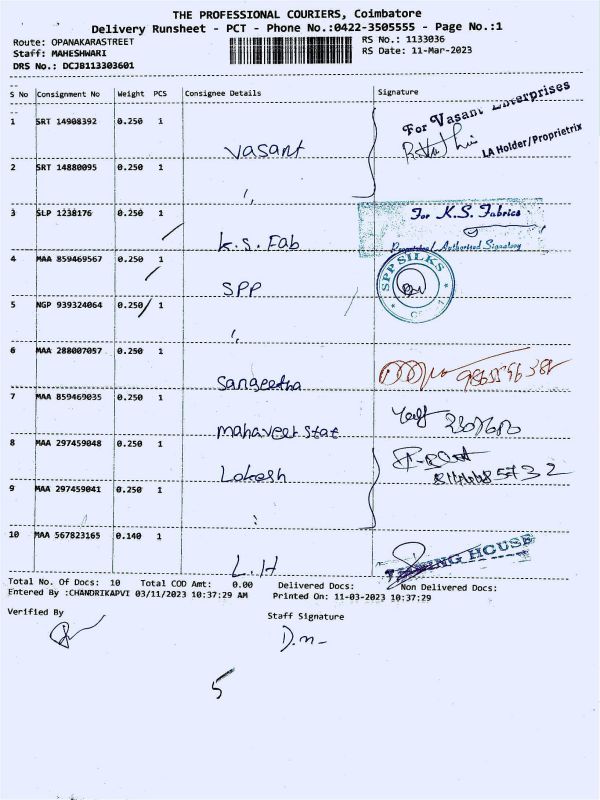 THE PROFESSIONAL COURIERS, Coimbatore
Delivery Runsheet - PCT - Phone No.:0422-3505555 - Page No.:1
Route: OPANAKARASTREET
RS No.: 1133036
Staff: MAHESHWARI
RS Date: 11-Mar-2023
DRS No.: DCJB113303601
S No Consignment No Weight PCS Consignee Details Signature
1 SRT 14908392 0.250 1 Vasant
For Vasant Enterprises
LA Holder/Proprietrix
2 SRT 14880095 0.250 1 ,,
3 SLP 1238176 0.250 1 K.S. Fab
For K.S. Fabrics
Authorised Signatory
4 MAA 859469567 0.250 1 SPP
SPP SILKS
5 NGP 939324064 0.250 1 ,,
6 MAA 288007057 0.250 1 Sangeetha
7 MAA 859469035 0.250 1 mahaveer stat
8 MAA 297459048 0.250 1 Lokesh
9 MAA 297459041 0.250 1 :
10 MAA 567823165 0.140 1 L.H
HOUSE
Total No. Of Docs: 10 Total COD Amt: 0.00 Delivered Docs: Non Delivered Docs:
Entered By :CHANDRIKAPVI 03/11/2023 10:37:29 AM Printed On: 11-03-2023 10:37:29
Verified By
Staff Signature
D.m-
5